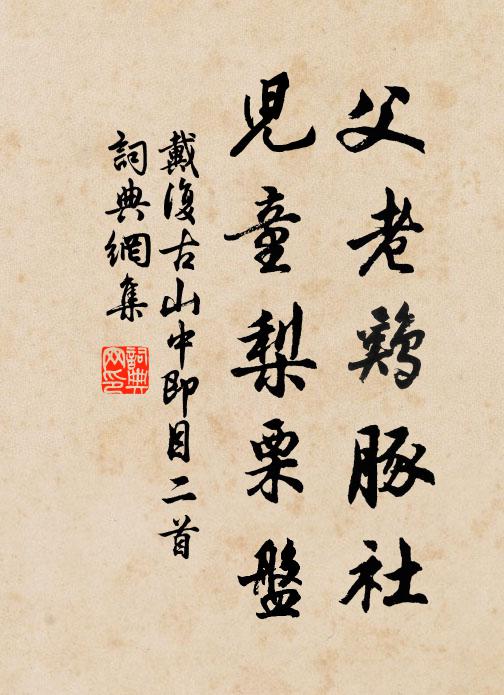 父老鷄豚社
兒童梨栗盤
戴復古山中即目二首
詞典網集
詞典网印